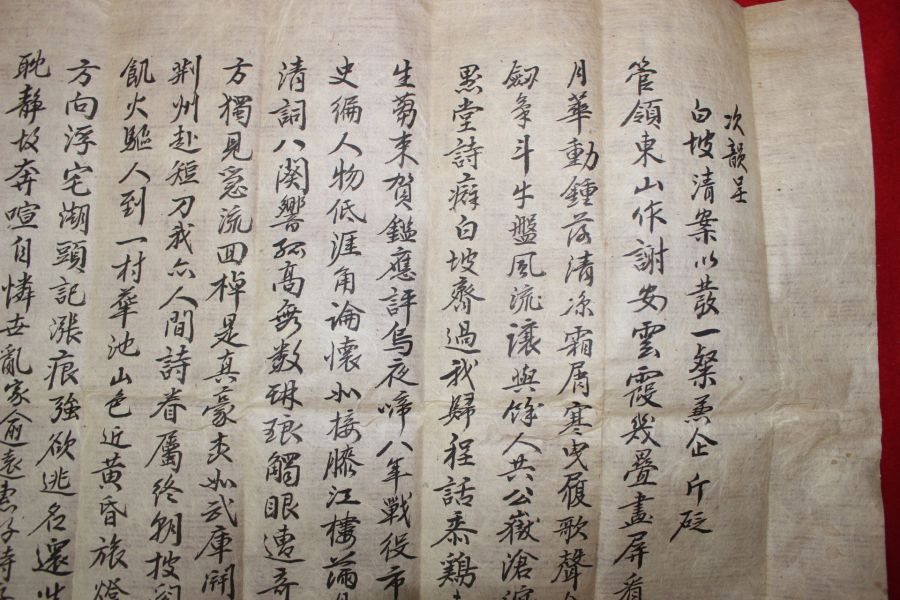 次韻呈
白坡清案以發一粲兼企斤砭
管領東山作謝安雲霞幾疊畫屏看
月華動鍾落清凉霜屑寒曳履歌聲
劔争斗牛盤風流讓與餘人共公嶽滄
㸃堂詩癖白坡齊過我歸程話黍鷄
生蒭束賀鑑應評烏夜啼八年戰役市
史編人物低涯角論懷如接膝江樓
清詞八闋響孤高無数琳琅觸眼遭
方獨見急流回棹是真豪求如武庫開
荆州赴短刀我亦人間詩眷属終朝披
飢火驅人到一村華池山色近黄昏旅燈
方向浮宅湖頭記漲痕強欲逃名還
耽静故奔喧自憐世亂家逾遠